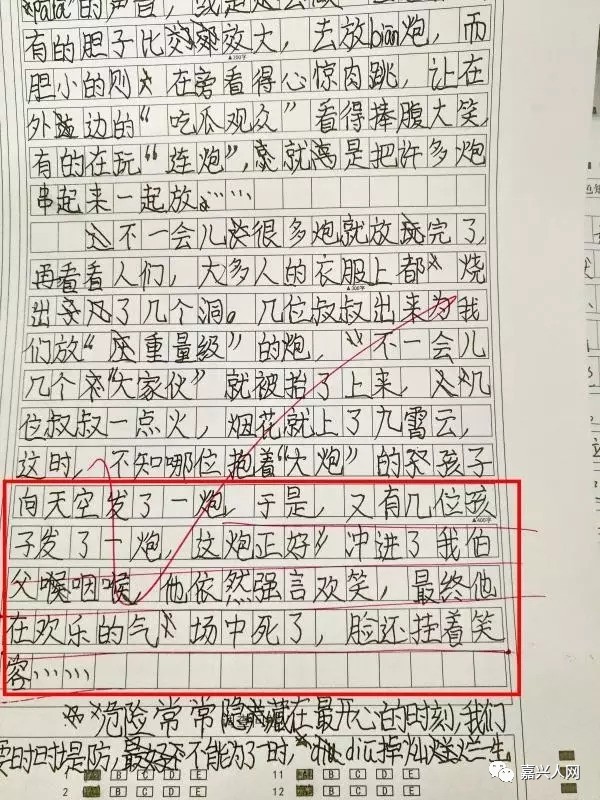 "pala"的声音,
有的胆子比较大，去放bian炮，而
胆小的则在旁看得心惊肉跳，让在
外边的“吃瓜观众”看得捧腹大笑
有的在玩“连炮”，就是把许多炮
▲200字
串起来一起放……
不一会儿很多炮就放完了，
再看看人们，大多人的衣服上都烧
▲300字
出了几个洞。几位叔叔出来为我
们放“重量级”的炮，不一会儿
几个“大家伙”就被抬了上来，几
位叔叔一点火，烟花就上了九霄云，
这时，不知哪位抱着“大炮”的孩子
向天空发了一炮，于是，又有几位孩
▲400字
子发了一炮，这炮正好冲进了我伯
父喉咽喉，他依然强言欢笑，最终他
在欢乐的气场中死了，脸还挂着笑
容……
危险常常隐藏在最开心的时刻，我们
要时时堤防，不能为了一时，diu掉一生
A B C D E 11 A B C D E
2 A B C D E 12 A B C D E
嘉兴人网